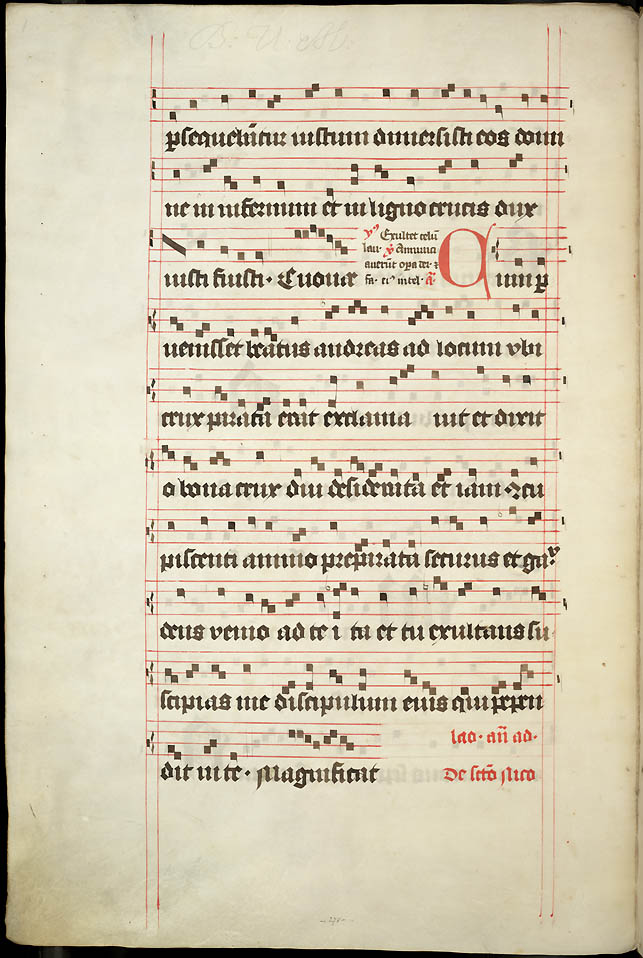 B. V. M.
psequebātur iustum dimersisti eos domi
ne in infernum et in ligno crucis dux
iusti fuisti · Euouae
Exultet celū
laur Annunci
auerūt opa dei ⁊
fa · ei⁹ intel · a
Cum p
uenisset beatus andreas ad locum vbi
crux parata erat exclama uit et dixit
o bona crux diu desiderata et iam ꝯcu
piscenti animo preparata securus et gau
deus venio ad te i ta et tu exultans su
scipias me discipulum eius qui pepen
dit in te · Magnificat
lad · añ ad ·
De scto Nico